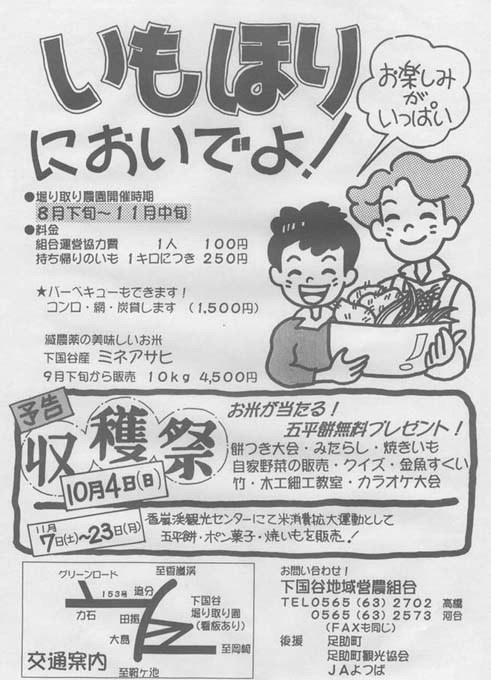 いもほり
においでよ!
お楽しみ
が。
いっぱい
●堀り取り農園開催時期
8月下旬~11月中旬
●料金
組合運営協力費 1人 100円
持ち帰りのいも 1キロにつき 250円
★バーベキューもできます!
コンロ・網・炭貸します (1,500円)
減農薬の美味しいお米
下国谷産 ミネアサヒ
9月下旬から販売 10kg 4,500円
予告
収穫祭
10月4日(日)
お米が当たる!
五平餅無料プレゼント!
餅つき大会・みたらし・焼きいも
自家野菜の販売・クイズ・金魚すくい
竹・木工細工教室・カラオケ大会
11月
7日(土)~23日(月)
香嵐渓観光センターにて米消費拡大運動として
五平餅・ポン菓子・焼いもを販売!
至香嵐渓
グリーンロード
153号
追分
力石
田振
下国谷
堀り取り園
(看板あり)
大島
至岡崎
至鞍ケ池
交通案内
お問い合わせ!
下国谷地域営農組合
TEL0565 (63) 2702 高橋
0565 (63) 2573 河合
(FAXも同じ)
後援 足助町
足助町観光協会
JAよつば